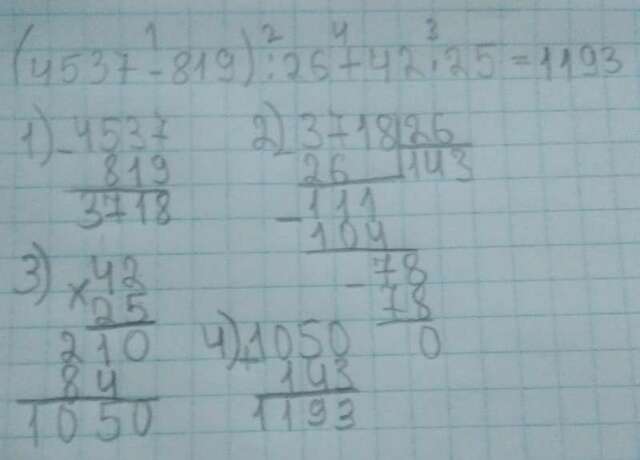 1 2 4 3
(4537-819):26+42·25=1193
1) -4537
819
3718
2) -3718|26
26 143
-111
104
-78
78
0
3) ×42
25
210
84
1050
4) +1050
143
1193